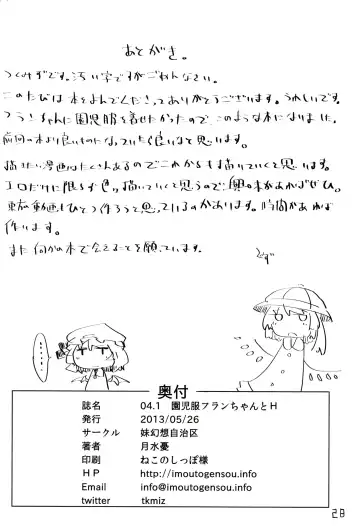 あとがき。
つくみずです。汚い字ですがごめんなさい。
このたびは本をよんでくださってありがとうございます。うれしいです。
フランちゃんに園児服を着せたかったので、このような本になりました。
前回の本より良いものになっていたら良いなと思います。
描きたい漫画はたくさんあるのでこれからも描いていくと思います。
エロだけに限らず色々描いていくと思うので、興味があればぜひ。
東方動画もひとつ作ろうと思っているのがあります。時間があれば
作ります。
また何かの本で会えることを願っています。
奥付
誌名 04.1 園児服フランちゃんとH
発行 2013/05/26
サークル 妹幻想自治区
著者 月水憂
印刷 ねこのしっぽ様
HP http://imoutogensou.info
Email info@imoutogensou.info
twitter tkmiz
28